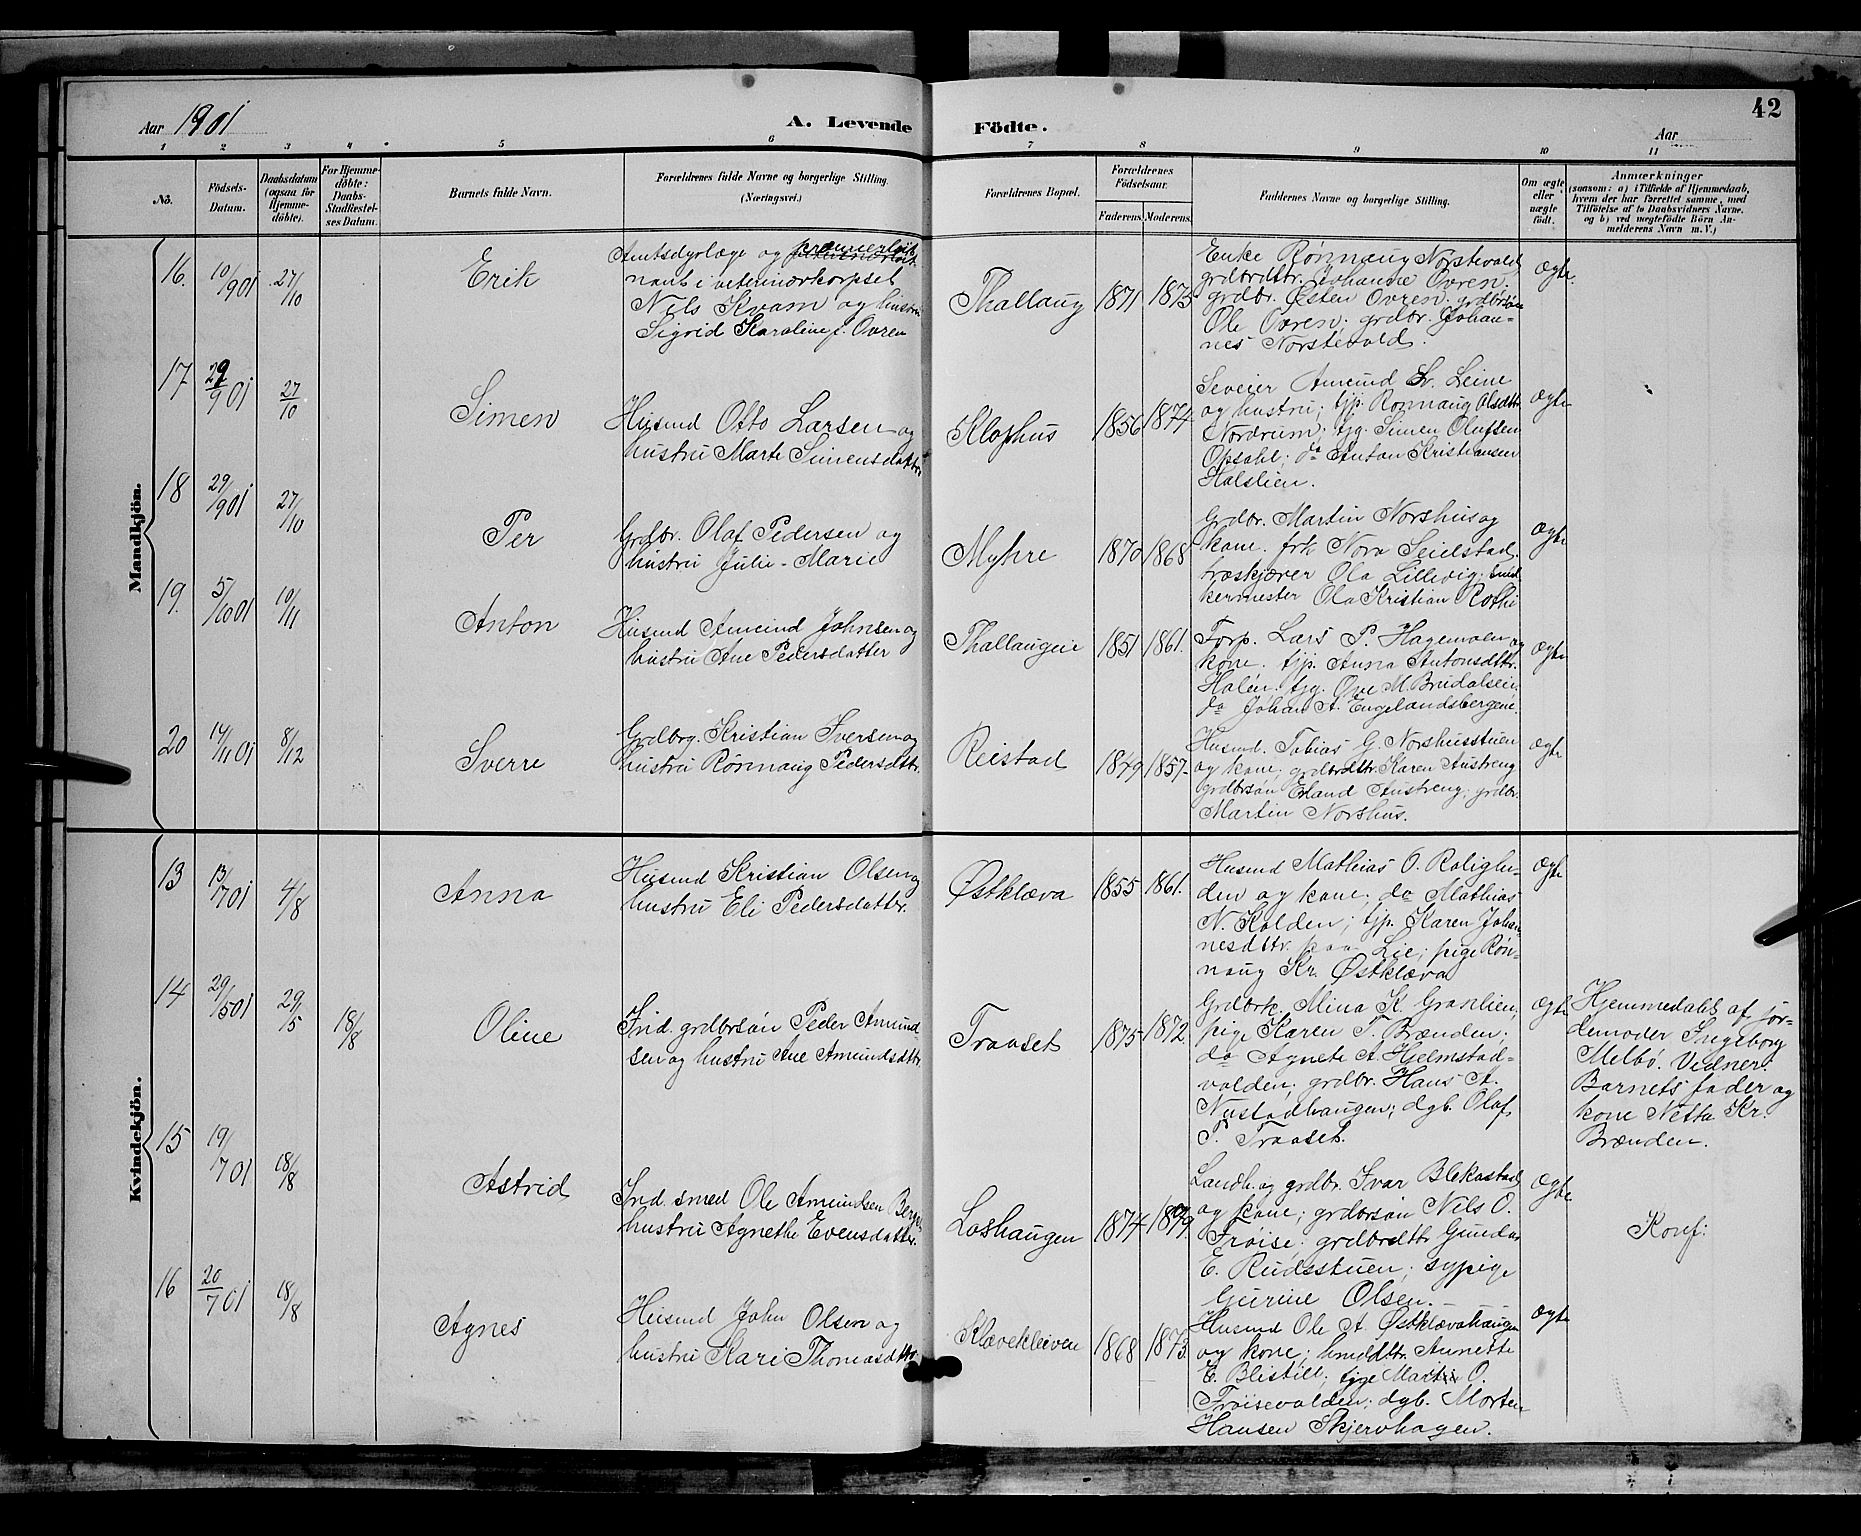 42
Aar 1901
A. Levende Födte.
Aar
1 2 3 4 5 6 7 8 9 10 11
No.
Födsels-
Datum.
Daabsdatum
(ogsaa for
Hjemme-
döbte).
For Hjemme-
döbte:
Daabs-
Stadfæstel-
ses Datum.
Barnets fulde Navn.
Forældrenes fulde Navne og borgerlige Stilling.
(Næringsvei.)
Forældrenes Bopæl.
Forældrenes
Födselsaar.
Faderens. Moderens.
Faddernes Navne og borgerlige Stilling.
Om ægte
eller
uægte
födt.
Anmærkninger
(saasom: a) i Tilfælde af Hjemmedaab,
hvem der har forrettet samme, med
Tilföielse af to Daabsvidners Navne,
og b) ved uægtefödte Börn An-
melderens Navn m. V.)
Mandkjön.
16. 10/9 01 27/10
Erik
Amtsdyrlæge og premierløit-
nant i veterinærkorpset
Nils Kvam og hustru
Sigrid Karoline f. Ovren
Thallaug
1871 1875
Enke Rønnaug Norstevold
grdbrdttr. Johanne Ovren;
grdbr. Østen Ovren; grdbrsøn
Ole Ovren; grdbr. Johan-
nes Norstevold.
Ægte
17 29/9 01 27/10
Simen
Husmd Otto Larsen og
hustru Marte Simensdatter
Klophus
1856 1874
Sveier Amund Lr. Leine
og hustru; tjp. Rønnaug Olsdttr
Nordrum; tjg. Simen Olufsen
Opsahl; do Anton Kristiansen
Halslien.
Ægte
18 29/9 01 27/10
Per
Grdbr. Olaf Pedersen og
hustru Julie-Marie
Myhre
1870 1868
Grdbr. Martin Norshus og
kone. frk Nora Seielstad.
træskjærer Ola Lillevig; snid
kermester Ola Kristian Rothi
Ægte
19. 5/10 01 10/11
Anton
Husmd Amund Johnsen og
hustru Ane Pedersdatter
Thallaugeie
1851 1861.
Forp. Lars P. Hagemoen og
kone. tjp. Anna Antonsdttr.
Halén. tjg. Ove M. Brudalseie.
do Johan A. Engelandsbergene.
Ægte
20 14/11 01 8/12
Sverre
Grdbrg. Kristian Iversen og
hustru Rønnaug Pedersdttr.
Reistad
1849 1857.
Husmd. Tobias G. Norshusstuen
og kone; grdbrdttr. Karen Austreng
grdbrsøn Erland Austreng; grdbr.
Martin Norshus.
Ægte
Kvindekjön.
13 13/7 01 4/8
Anna
Husmd Kristian Olsen og
hustru Eli Pedersdatter.
Østklæva
1855 1861.
Husmd Mathias O. Roligh-
den og kone; do Mathias
N. Kolden; tjp. Karen Johan-
nesdttr. paa Lie; pige Røn-
naug Kr. Østklæva
Ægte
14 29/5 01 29/5 18/8
Oline
Ind. grdbrsøn Peder Amund-
sen og hustru Ane Amundsdttr.
Traaset
1875 1872
Grdbrk. Mina K. Graslien;
pige Karen T. Brænden;
do Agnete A. Hjelmstad-
volden; grdbr. Hans A.
Nustadhaugen; dgb. Olaf
P. Traaset.
Ægte
Hjemmedøbt af jor-
demoder Ingeborg
Melbö. Vidner.
Barnets fader og
kone Netta Kr.
Brænden.
15 19/7 01 18/8
Astrid
Ind. smed Ole Amundsen Berge
hustru Agnethe Evensdatter.
Loshaugen
1874 1879.
Landh. og grdbr. Ivar Blekastad
og kone; grdbrsøn Nils O.
Frøise; grdbrdttr Gunda
E. Rudsstuen; sypige
Gurine Olsen.
Ægte
Konf:
16 20/7 01 18/8
Agnes
Husmd John Olsen og
hustru Kari Thomasdttr.
Klævekleiven
1868 1873
Husmd Ole A. Østklævahaugen
og kone; hmddttr. Annette
E. Blistill; tjge Martin O.
Frøisevolden; dgb. Morten
Hansen Skjervhagen.
Ægte